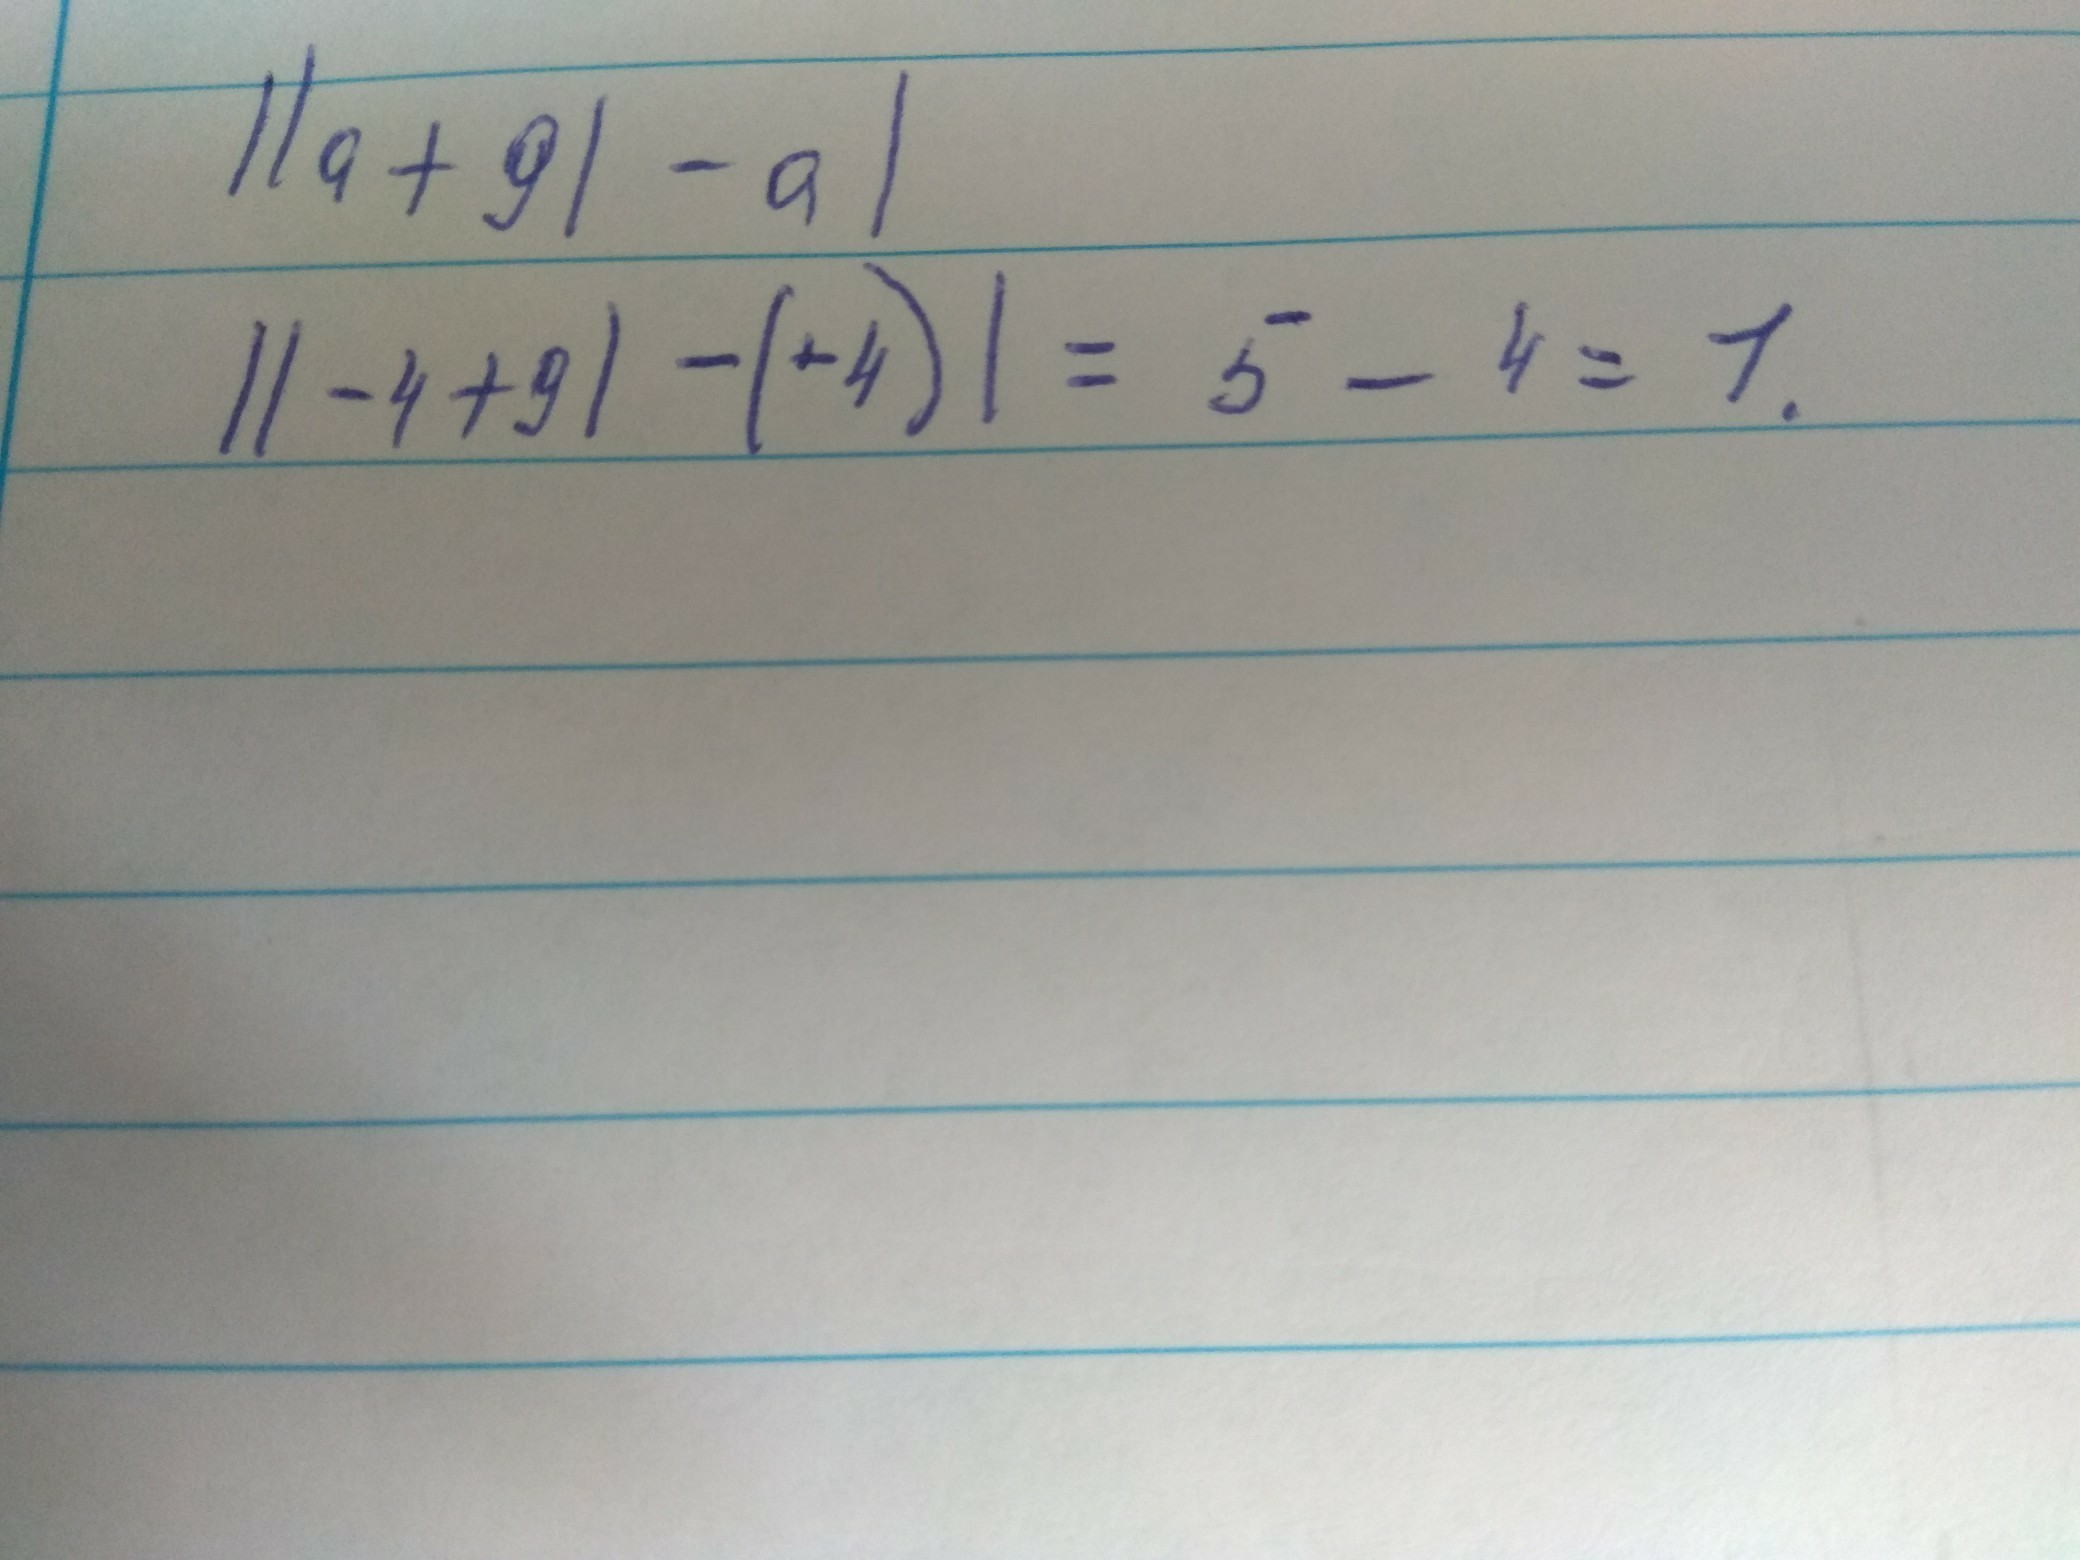 ||a + 9| - a|
||-4+9| -(+4)| = 5 - 4 = 1.